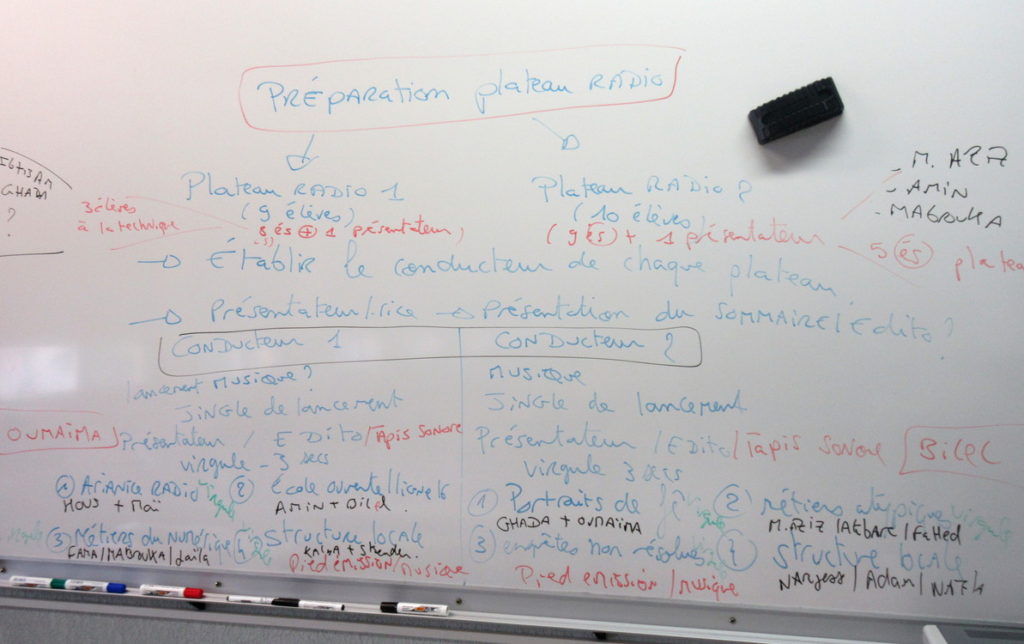 PRÉPARATION plateau RADIO
Plateau RADIO 1
(9 élèves)
8 és + 1 présentateur
Plateau RADIO 2
(10 élèves)
(9 és) + 1 présentateur
IBTISAM
GHADA
?
3 élèves
à la technique
M. AZIZ
- AMIN
- MABROUKA
5 és plateau
→ ÉTABLIR le conducteur de chaque plateau
→ Présentateur/rice → Présentation du SOMMAIRE/Edito?
CONDUCTEUR 1
lancement MUSIQUE?
JINGLE de lancement
OUMAÏMA
Présentateur / EDITO/TAPIS SONORE
virgule - 3 secs
① Atlantice RADIO
② École ouverte/ligne 16
AMIN + Bilel
③ Métiers du numérique
FAMA/MABROUKA/Laïla
④ Structure locale
Pied émission/musique
CONDUCTEUR 2
MUSIQUE
JINGLE de lancement
Présentateur/EDITO/TAPIS SONORE
BILEL
virgule 3 secs
① Portraits de
GHADA + OUMAÏMA
② métiers atypiques virgule
M. AZIZ/Akbar/Fahed
③ enquêtes non résolues
④ structure locale
NARJESS/Adam/
Pied emission/musique